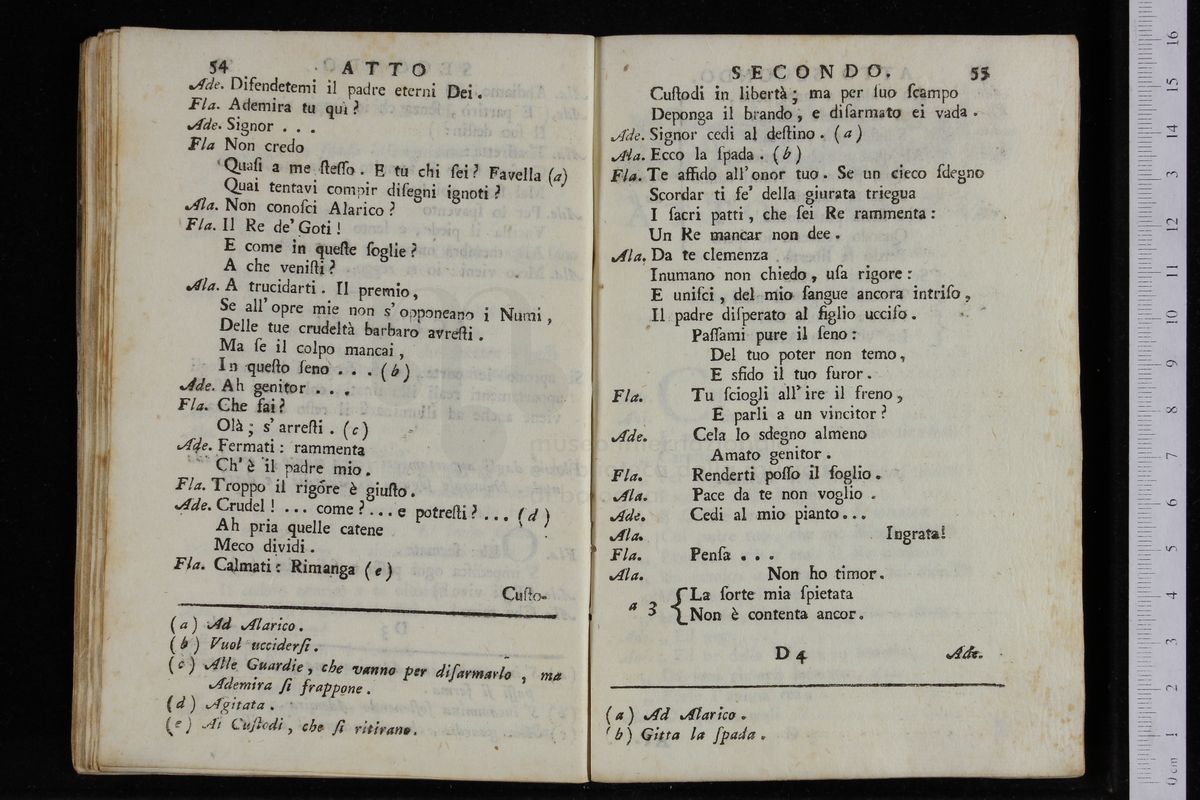 54 ATTO
Ade. Difendetemi il padre eterni Dei.
Fla. Ademira tu quì?
Ade. Signor . . .
Fla Non credo
Quaſi a me ſteſſo. E tu chi ſei? Favella (a)
Quai tentavi compir diſegni ignoti?
Ala. Non conoſci Alarico?
Fla. Il Re de' Goti!
E come in queſte ſoglie?
A che veniſti?
Ala. A trucidarti. Il premio,
Se all' opre mie non s' opponeano i Numi,
Delle tue crudeltà barbaro avreſti.
Ma ſe il colpo mancai,
In queſto ſeno . . . (b)
Ade. Ah genitor . . .
Fla. Che fai?
Olà; s' arreſti. (c)
Ade. Fermati: rammenta
Ch' è il padre mio.
Fla. Troppo il rigóre è giuſto.
Ade. Crudel! ... come?...e potreſti?... (d)
Ah pria quelle catene
Meco dividi.
Fla. Calmati: Rimanga (e)
Cuſto-
(a) Ad Alarico.
(b) Vuol ucciderſi.
(c) Alle Guardie, che vanno per diſarmarlo, ma
Ademira ſi frappone.
(d) Agitata.
(e) Ai Cuſtodi, che ſi ritirano.
SECONDO. 55
Cuſtodi in libertà; ma per ſuo ſcampo
Deponga il brando, e diſarmato ei vada.
Ade. Signor cedi al deſtino. (a)
Ala. Ecco la ſpada. (b)
Fla. Te affido all' onor tuo. Se un cieco ſdegno
Scordar ti fe' della giurata triegua
I ſacri patti, che ſei Re rammenta:
Un Re mancar non dee.
Ala. Da te clemenza
Inumano non chiedo, uſa rigore:
E uniſci, del mio ſangue ancora intriſo,
Il padre diſperato al figlio ucciſo.
Paſſami pure il ſeno:
Del tuo poter non temo,
E sfido il tuo furor.
Fla. Tu ſciogli all' ire il freno,
E parli a un vincitor?
Ade. Cela lo sdegno almeno
Amato genitor.
Fla. Renderti poſſo il ſoglio.
Ala. Pace da te non voglio.
Ade. Cedi al mio pianto...
Ala. Ingrata!
Fla. Penſa . . .
Ala. Non ho timor.
a 3 { La ſorte mia ſpietata
Non è contenta ancor.
D 4 Ade.
(a) Ad Alarico.
(b) Gitta la ſpada.